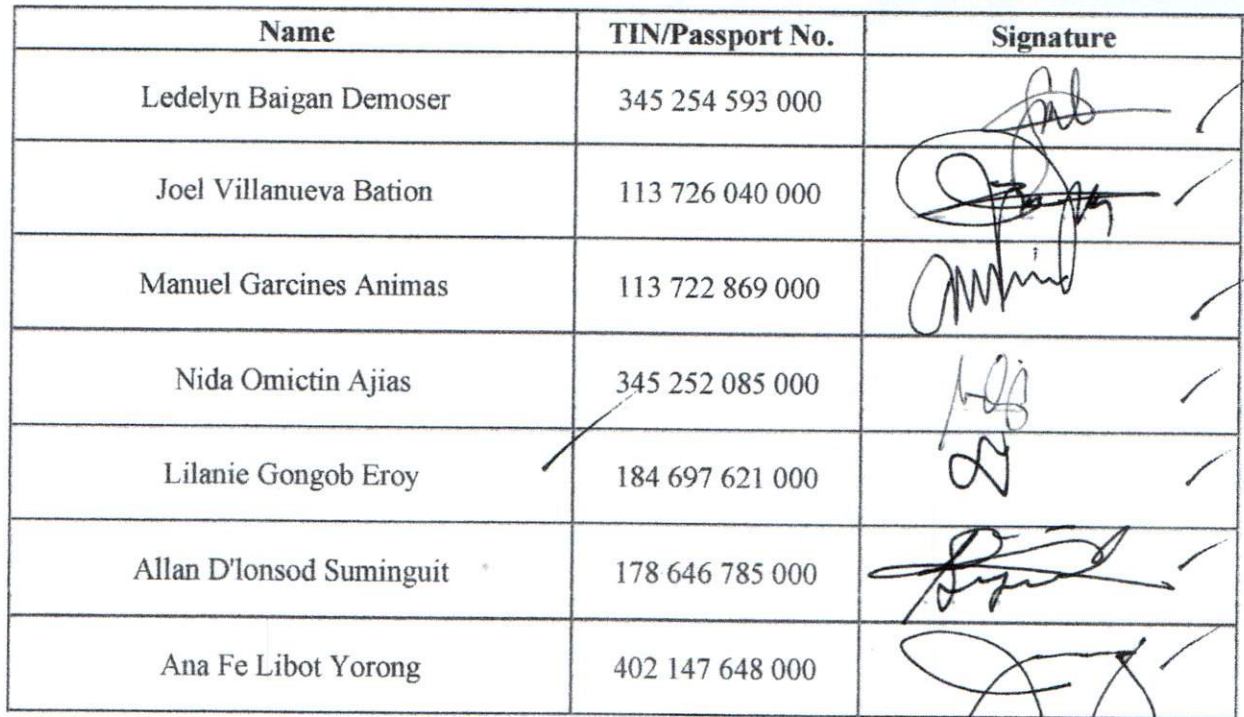 Name TIN/Passport No. Signature
Ledelyn Baigan Demoser 345 254 593 000
Joel Villanueva Bation 113 726 040 000
Manuel Garcines Animas 113 722 869 000
Nida Omictin Ajias 345 252 085 000
Lilanie Gongob Eroy 184 697 621 000
Allan D'lonsod Suminguit 178 646 785 000
Ana Fe Libot Yorong 402 147 648 000